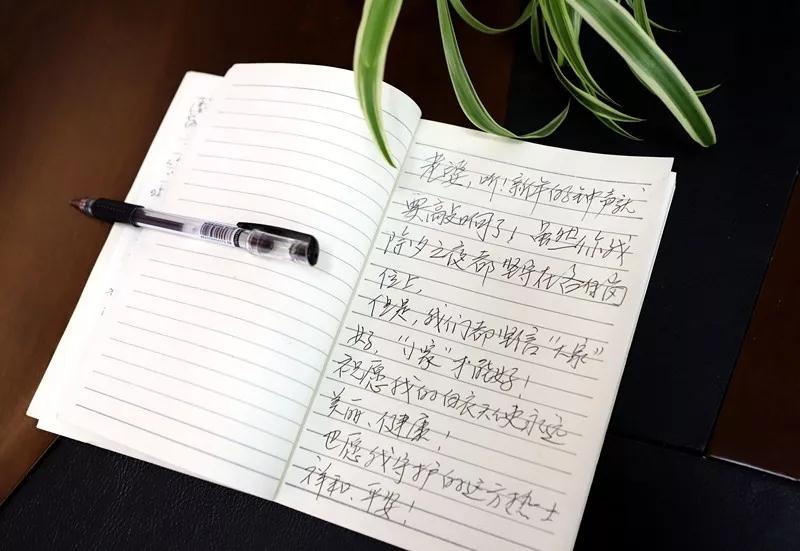 老婆,听!新年的钟声就
要敲响了!虽然你我
除夕之夜都坚守在各自岗
位上,
但是,我们都坚信“大家”
好,“小家”才能好!
祝愿我的白衣天使永远
美丽、健康!
也愿我守护的这方热土
祥和、平安!